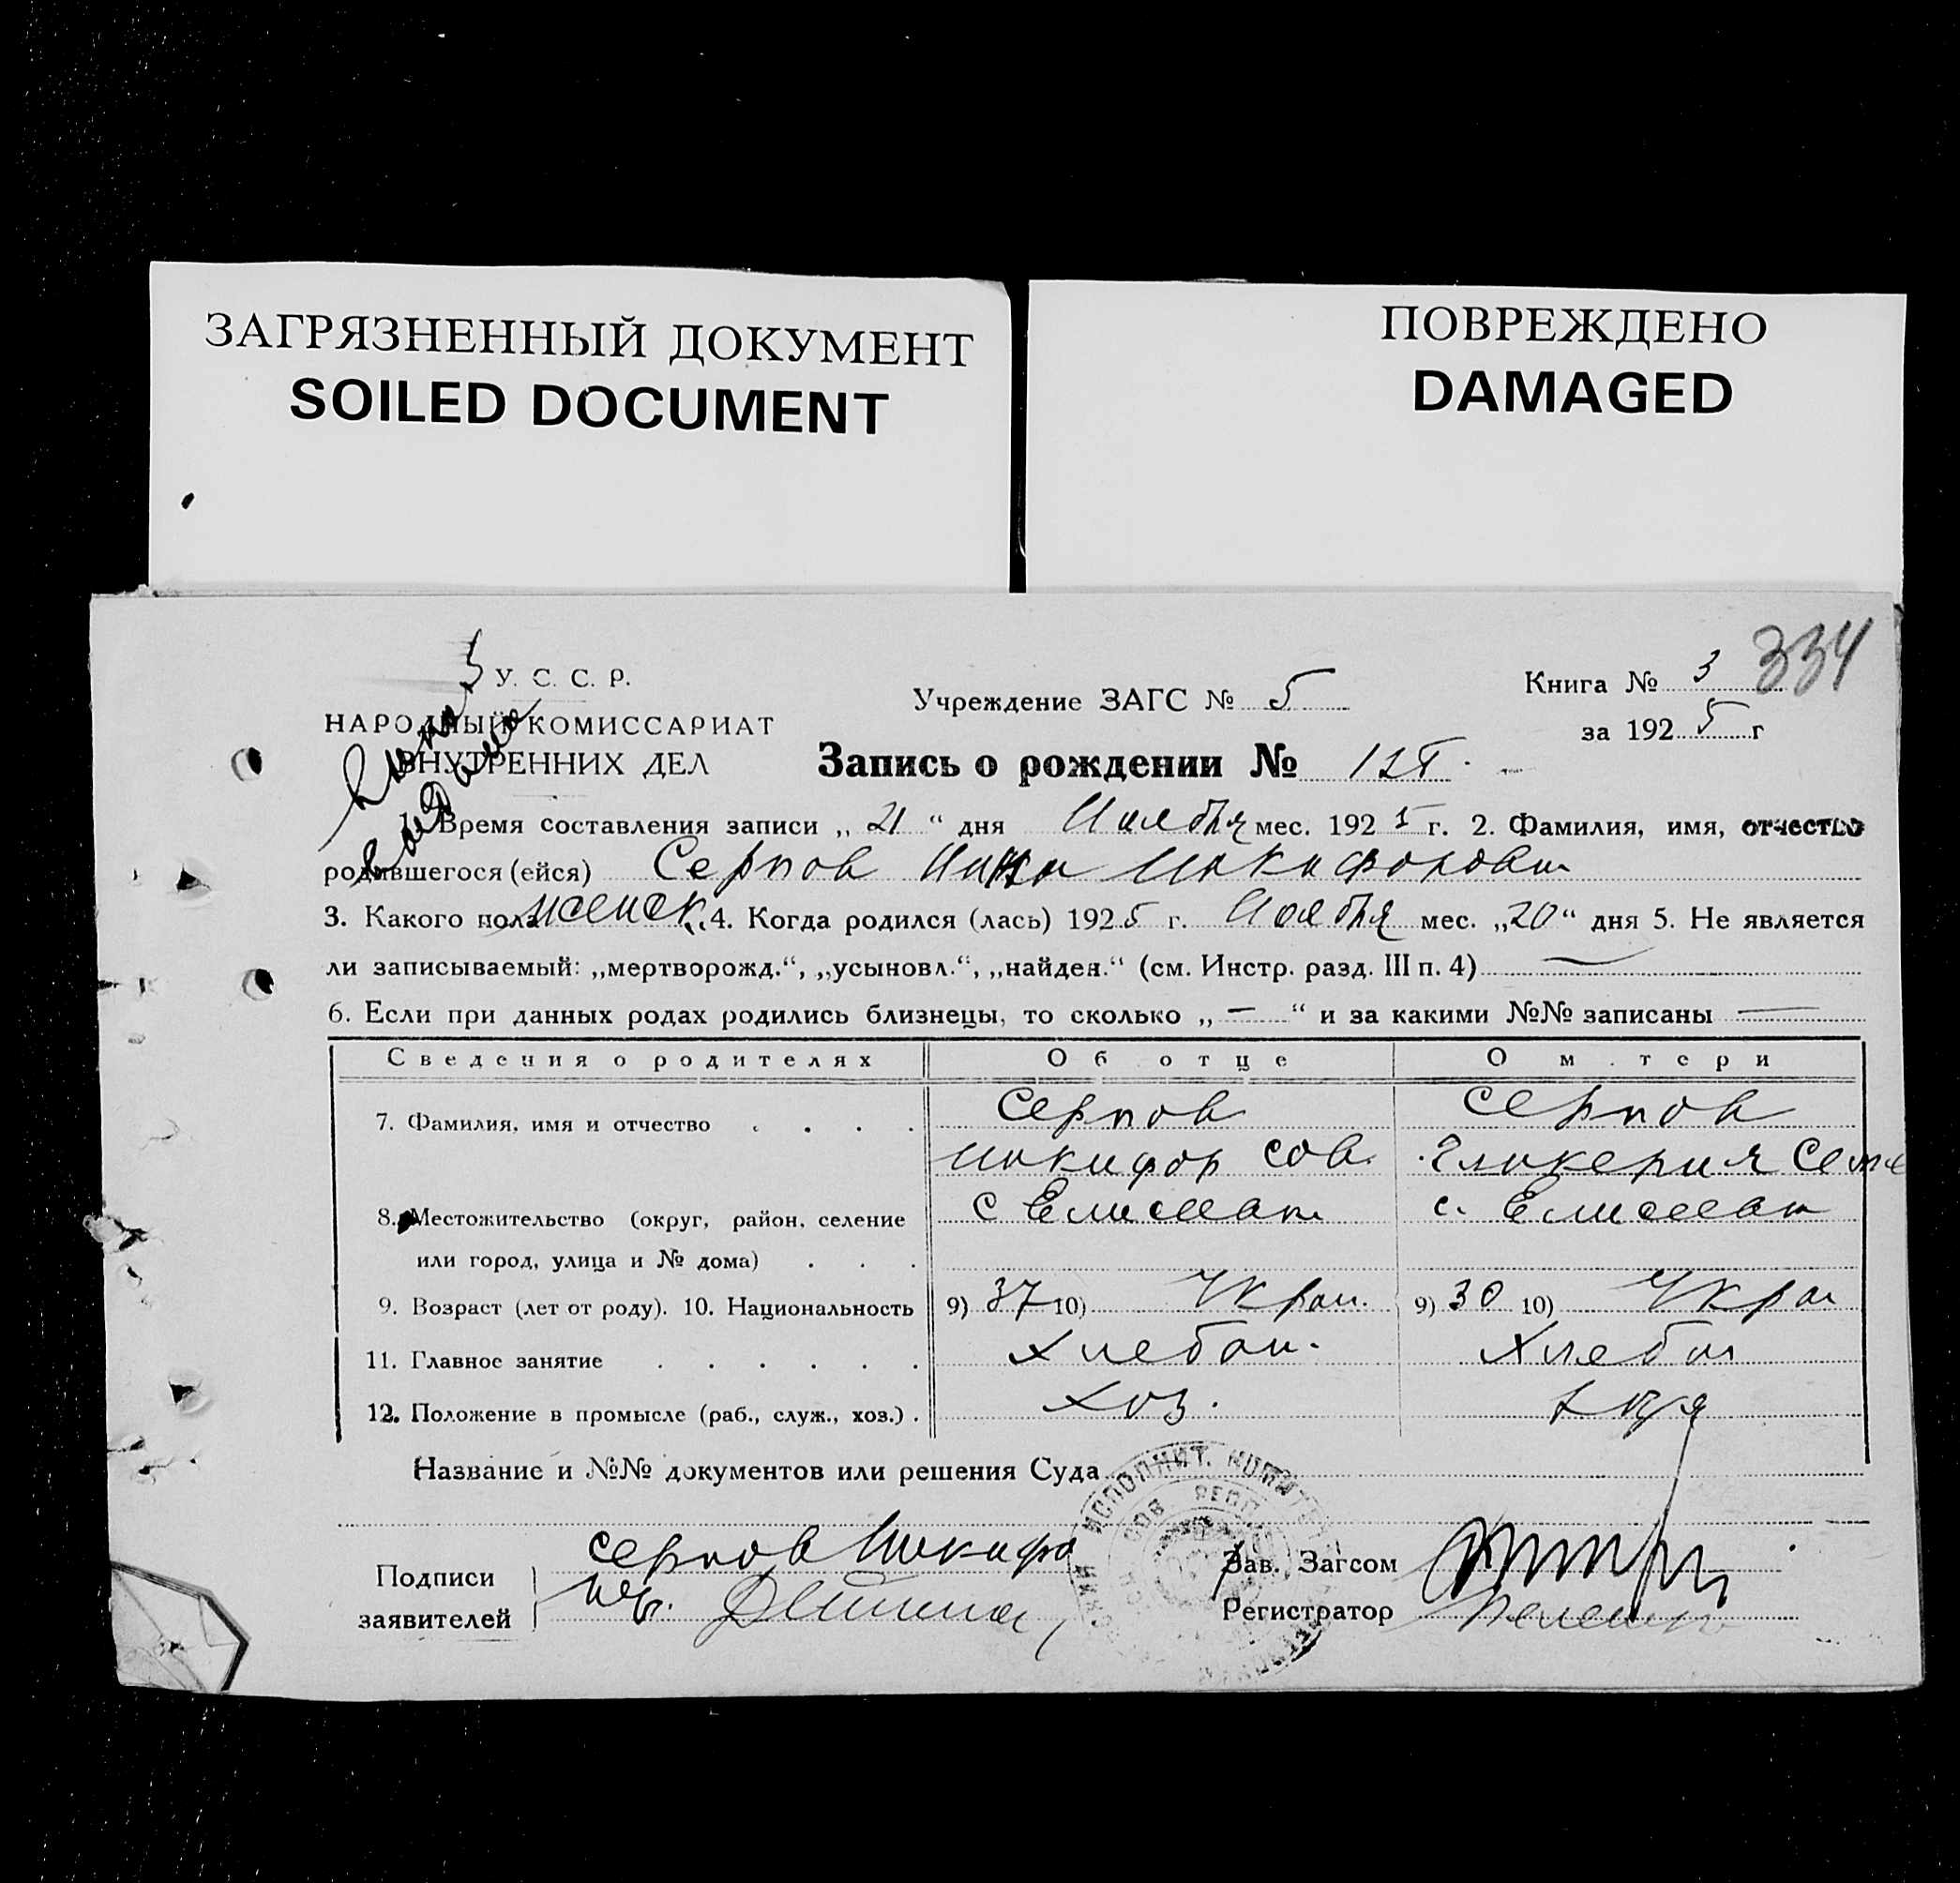 ЗАГРЯЗНЕННЫЙ ДОКУМЕНТ
SOILED DOCUMENT
ПОВРЕЖДЕНО
DAMAGED
334
У. С. С. Р.
НАРОДНЫЙ КОМИССАРИАТ
ВНУТРЕННИХ ДЕЛ
Учреждение ЗАГС № 5
Книга № 3
за 1925 г
Запись о рождении №
1. Время составления записи „ 21 “ дня Ноября мес. 1925 г. 2. Фамилия, имя, отчество
родившегося (ейся) Серпов
3. Какого пола женск. 4. Когда родился (лась) 1925 г. Ноября мес. „20“ дня 5. Не является
ли записываемый: „мертворожд.“, „усыновл.“, „найден.“ (см. Инстр. разд. III п. 4) —
6. Если при данных родах родились близнецы, то сколько „ — “ и за какими №№ записаны —
Сведения о родителях Об отце О м тери
7. Фамилия, имя и отчество . . . . Серпов Серпов
Никифор Сав. Гликерия Семе
8. Местожительство (округ, район, селение с с.
или город, улица и № дома) . . .
9. Возраст (лет от роду). 10. Национальность 9) 37 10) Украи. 9) 30 10) Украи
11. Главное занятие . . . . . . Хлебоп. Хлебоп
12. Положение в промысле (раб., служ., хоз.) . Хоз.
Название и №№ документов или решения Суда
ИСПОЛНИТ. КОМИТ
Подписи
заявителей
Серпов Никифо
Зав. Загсом
Регистратор